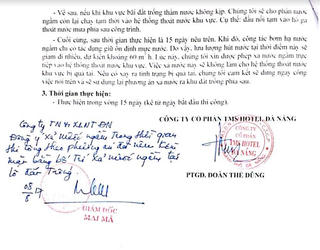 - Về sau, nếu khu vực bãi đất trống thấm nước không kịp. Chúng tôi sẽ cho phân nước
ngầm còn lại chạy tạm thời vào hệ thống thoát nước khu vực. Cụ thể: đấu nối tạm vào hố ga
thoát nước mưa phía sau công trình.
- Cuối cùng, sau thời gian thực hiện là 15 ngày nêu trên. Khi đó, công tác bơm hạ nước
ngầm chỉ có tác dụng giữ ổn định mực nước. Do vậy, lưu lượng hút nước tại thời điểm này sẽ
giảm đi nhiều, dự kiến khoảng 60 m³/h. Lúc này, chúng tôi xin được phép xả nước ngầm trực
tiếp vào hệ thống thoát nước khu vực. Việc xả nước này sẽ không làm cho hệ thống thoát nước
khu vực bị quá tải. Nếu có xảy ra tình trạng bị quá tải, chúng tôi cam kết sẽ dừng ngay công
việc nói trên và sẽ sử dụng lại phương án xả nước ra khu đất trống phía sau.
3. Thời gian thực hiện:
- Thực hiện trong vòng 15 ngày (kể từ ngày bắt đầu thi công).
CÔNG TY CỔ PHẦN TMS HOTEL ĐÀ NẴNG
Công ty TN & XLNT ĐN
Đồng ý xả nước ngầm trong thời gian
thi công theo phương án đã nêu trên
xả nước ngầm tại
lô đất trống
CÔNG TY
CỔ PHẦN
TMS HOTEL
ĐÀ NẴNG
PTGĐ. ĐOÀN THẾ DŨNG
GIÁM ĐỐC
MAI MÃ